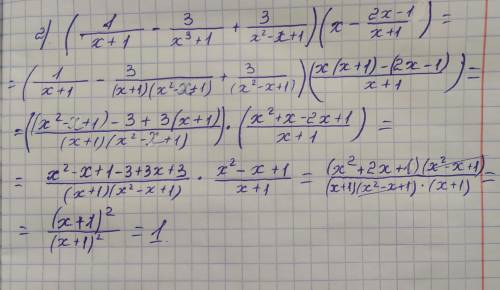 2) (1/(x+1) - 3/(x³+1) + 3/(x²-x+1)) (x - (2x-1)/(x+1)) =
= (1/(x+1) - 3/((x+1)(x²-x+1)) + 3/(x²-x+1)) (x(x+1)-(2x-1))/(x+1)) =
= (((x²-x+1)-3+3(x+1))/((x+1)(x²-x+1))) · ((x²+x-2x+1)/(x+1)) =
= (x²-x+1-3+3x+3)/((x+1)(x²-x+1)) · (x²-x+1)/(x+1) = ((x²+2x+1)(x²-x+1))/((x+1)(x²-x+1)·(x+1)) =
= (x+1)²/(x+1)² = 1.